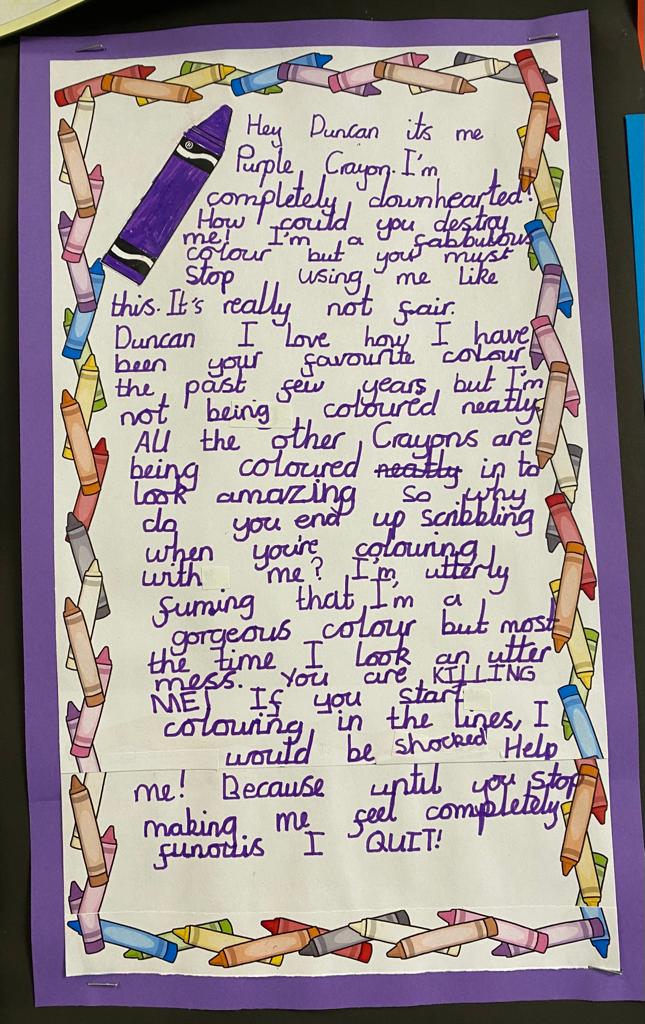 Hey Duncan its me
Purple Crayon. I'm
completely downhearted!
How could you destroy
me! I'm a fabbulous
colour but you must
stop using me like
this. It's really not fair.
Duncan I love how I have
been your favourite colour
the past few years but I'm
not being coloured neatly
All the other Crayons are
being coloured neatly in to
look amazing so why
do you end up scribbling
when you're colouring
with me? I'm utterly
fuming that I'm a
gorgeous colour but most
the time I look an utter
mess. You are KILLING
ME! If you start
colouring in the lines, I
would be shocked Help
me! Because until you stop
making me feel completely
I QUIT!
®